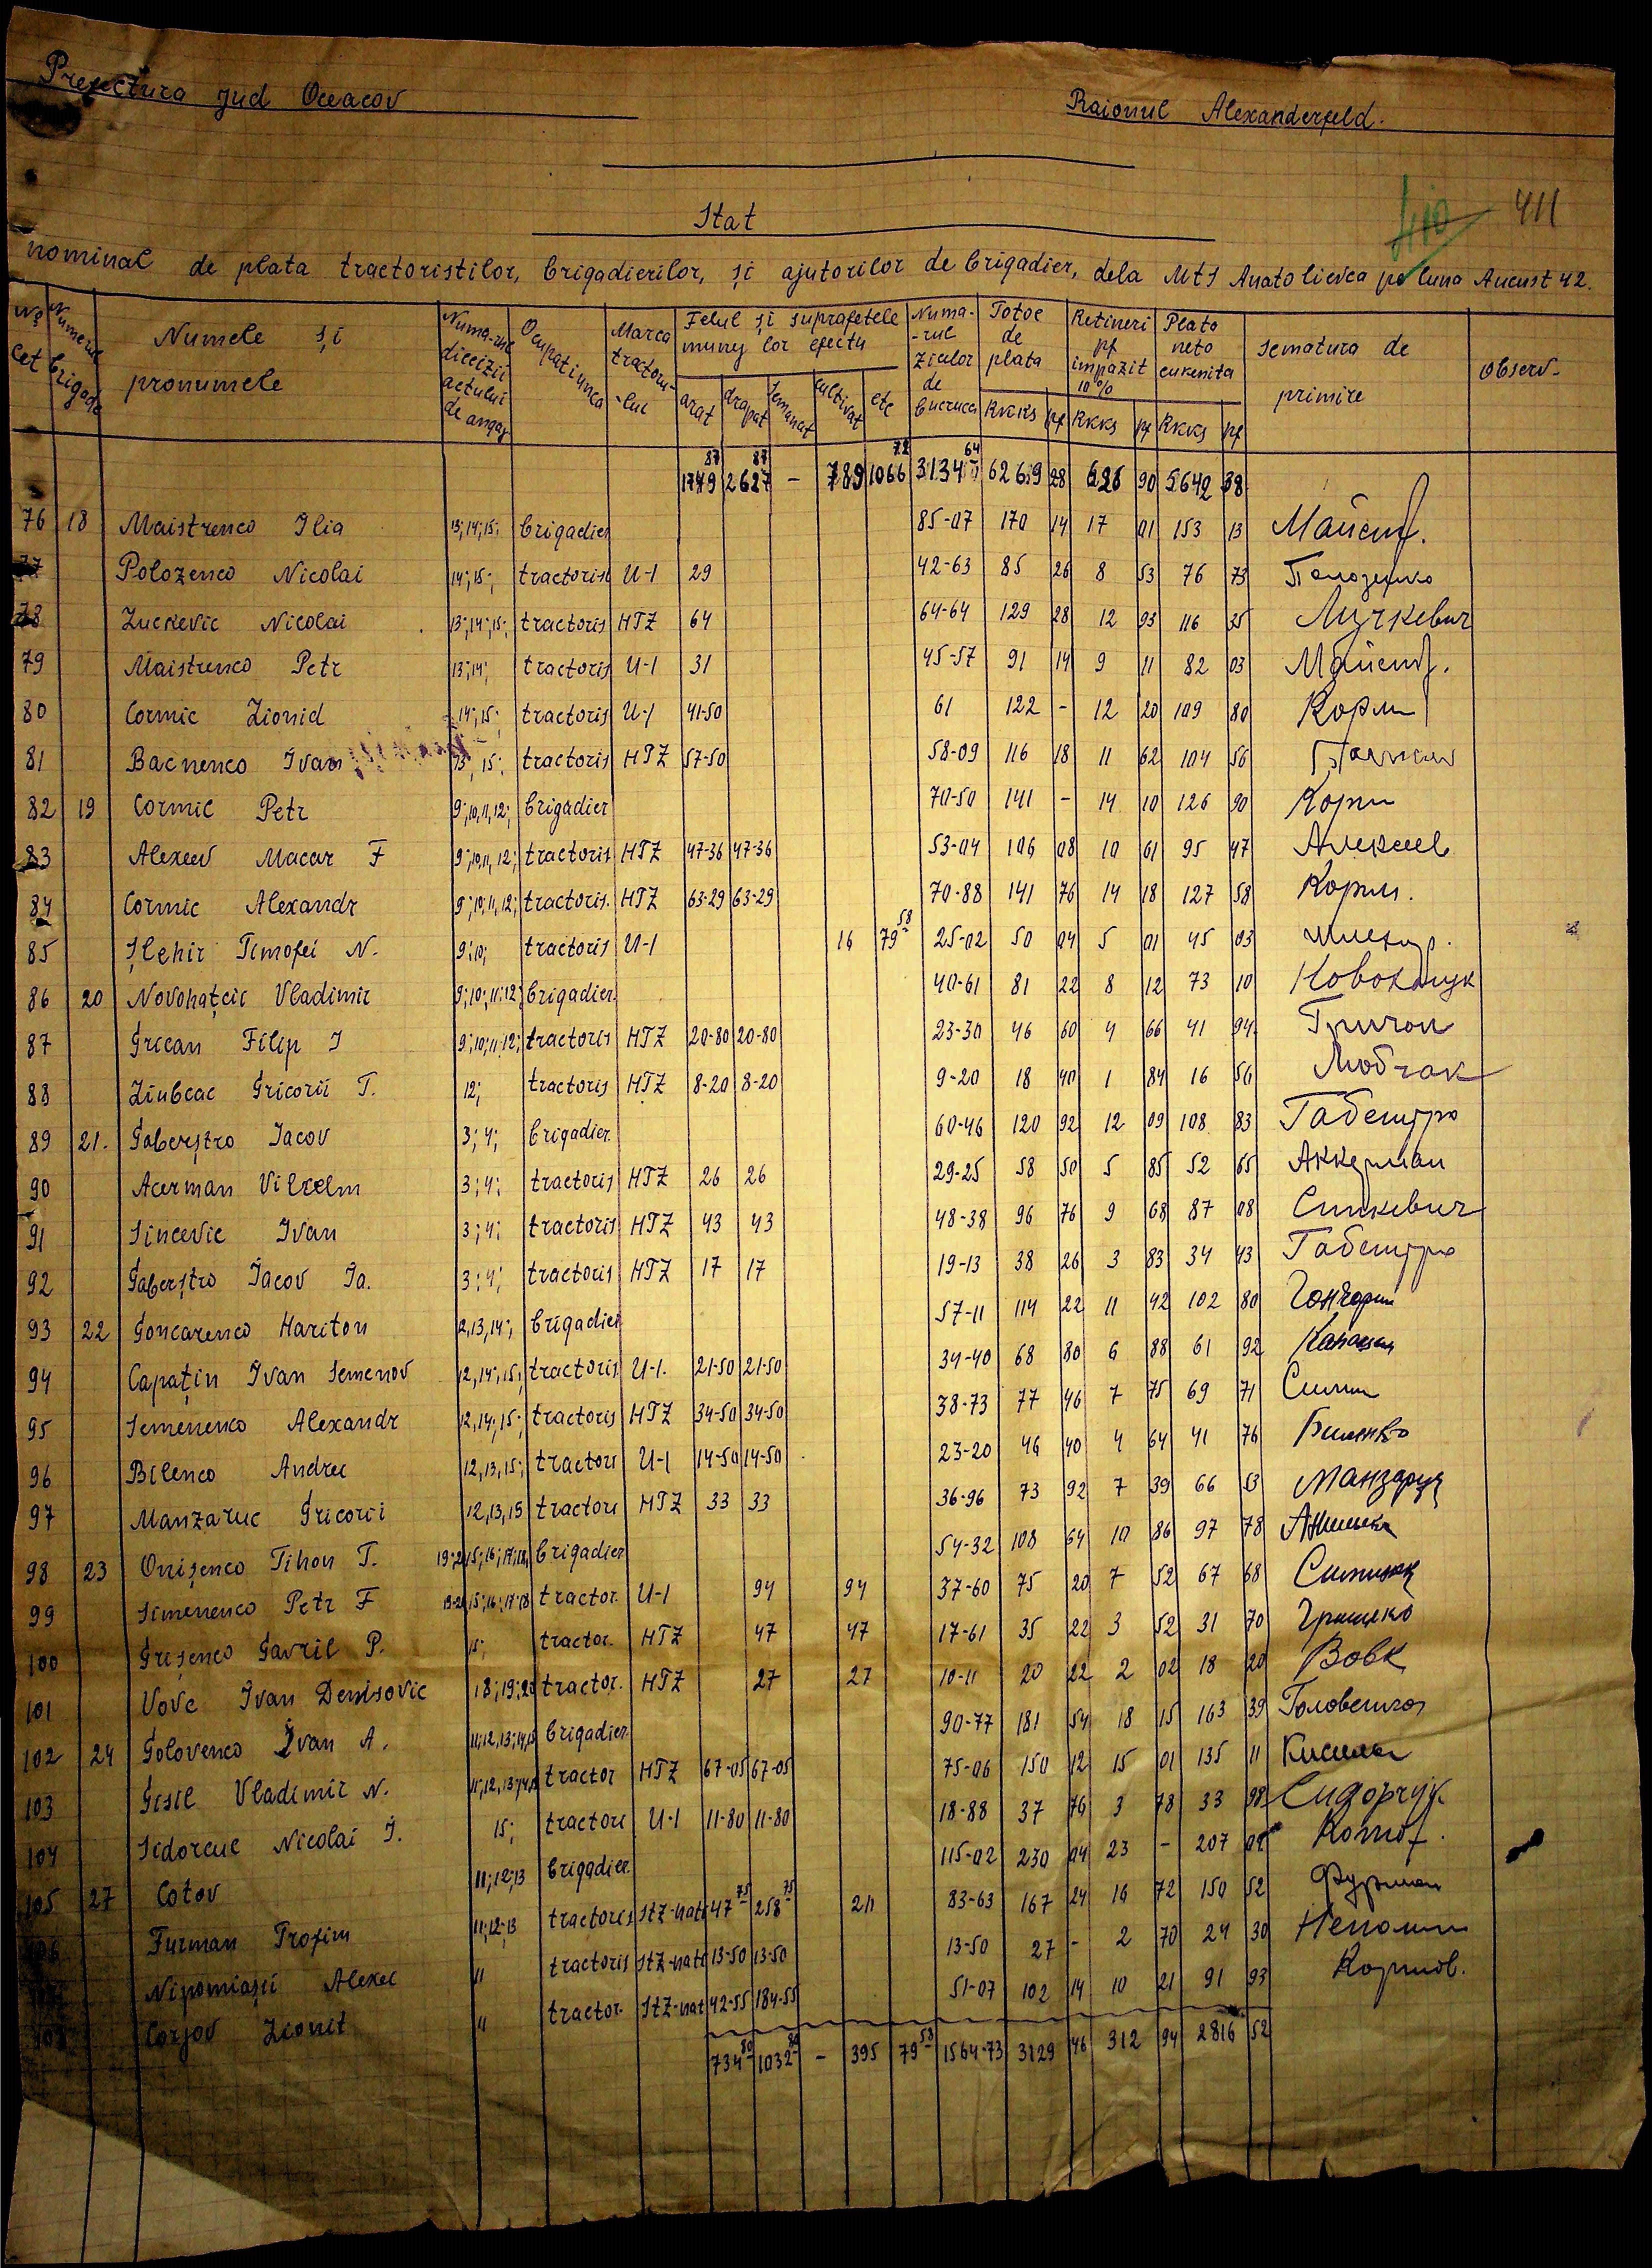 Prefectura Jud Oceacov
Raionul Alexanderfeld.
410 411
Stat
nominal de plata tractoristilor, brigadierilor, și ajutorilor de brigadier, dela MTS Anatolievca pe luna August 42.
Numele și pronumele
Ocupatiunea
Marca tractoru-lui
Felul și suprafetele
Numa-rul zielor de
Totoe de plata
Retineri pf impazit 10%
Plato neto
sematura de primire
observ-
arat drapat semanat cultivat etc RKKS pf RKKS pf RKKS pf
1749 87 2627 87 - 789 1066 72 3134 64 6269 28 626 90 5642 38
76 18 Maistrenco Ilia 13;14;15; brigadier 85-07 170 14 17 01 153 13
77 Polozenco Nicolai 14;15; tractorist U-1 29 42-63 85 26 8 53 76 73 Положенко
78 Zuckevic Nicolai 13;14;15; tractoris HTZ 64 64-64 129 28 12 93 116 35 Луцкевич
79 Maistrenco Petr 13;14; tractoris U-1 31 45-57 91 14 9 11 82 03
80 Cormic Lionid 14;15; tractoris U-1 41-50 61 122 - 12 20 109 80 Корм
81 Bacnenco Ivan 13; 15; tractoris HTZ 57-50 58-09 116 18 11 62 104 56
82 19 Cormic Petr 9;10,11,12; brigadier 70-50 141 - 14 10 126 90 Корм
83 Alexeev Macar F 9;10,11,12; tractoris HTZ 47-36 47-36 53-04 106 08 10 61 95 47 Алексеев
84 Cormic Alexandr 9;10,11,12; tractoris. HTZ 63-29 63-29 70-88 141 76 14 18 127 58 Корм.
85 Șlehir Timofei N. 9;10; tractoris U-1 16 79 58 25-02 50 04 5 01 45 03
86 20 Novohațcii Vladimir 9;10;11;12; brigadier. 40-61 81 22 8 12 73 10
87 Grican Filip I 9;10;11;12; tractoris HTZ 20-80 20-80 23-30 46 60 4 66 41 94
88 Liubcac Gricorii T. 12; tractoris HTZ 8-20 8-20 9-20 18 40 1 84 16 56 Любчак
89 21. Gaberștro Iacov 3; 4; brigadier. 60-46 120 92 12 09 108 83 Габештро
90 Acerman Vilxelm 3; 4; tractoris HTZ 26 26 29-25 58 50 5 85 52 65 Аккерман
91 Sincevic Ivan 3; 4; tractoris HTZ 43 43 48-38 96 76 9 68 87 08 Синкевич
92 Gaberștro Iacov Ia. 3; 4; tractoris HTZ 17 17 19-13 38 26 3 83 34 43 Габештро
93 22 Goncarenco Hariton 12,13,14; brigadier 57-11 114 22 11 42 102 80
94 Capațin Ivan Semenov 12,14;15; tractoris U-1. 21-50 21-50 34-40 68 80 6 88 61 92
95 Semenenco Alexandr 12,14;15; tractoris HTZ 34-50 34-50 38-73 77 46 7 75 69 71
96 Bilenco Andrei 12,13,15; tractori U-1 14-50 14-50 23-20 46 40 4 64 41 76 Биленко
97 Manzaruc Gricorii 12,13,15 tractori HTZ 33 33 36-96 73 92 7 39 66 53 Манзарук
98 23 Onișenco Tihon T. brigadier 54-32 108 64 10 86 97 78
99 Simenenco Petr F tractor. U-1 94 94 37-60 75 20 7 52 67 68
100 Grișenco Gavril P. 15; tractor. HTZ 47 47 17-61 35 22 3 52 31 70 Грищенко
101 Vovc Ivan Denisovic 18;19;20 tractor. HTZ 27 27 10-11 20 22 2 02 18 20 Вовк
102 24 Golovenco Ivan A. 11;12,13;14,15 brigadier 90-77 181 54 18 15 163 39
103 Gisil Vladimir N. 11;12,13;14,15 tractor HTZ 67-05 67-05 75-06 150 12 15 01 135 11
104 Sidorcuc Nicolai I. 15; tractori U-1 11-80 11-80 18-88 37 76 3 78 33 98 Сидорчук
105 27 Cotov 11;12;13 brigadier. 115-02 230 04 23 - 207 04 Котов.
Furman Trofim 11;12;13 tractoris StZ-nati 47 75 258 75 211 83-63 167 24 16 72 150 52 Фурман
Nipomiașii Alexei " tractoris StZ-nati 13-50 13-50 13-50 27 - 2 70 24 30
Corjov Lionit " tractor. StZ-nati 42-55 184-55 51-07 102 14 10 21 91 93
734 80 1032 80 - 395 79 58 1564-73 3129 46 312 94 2816 52